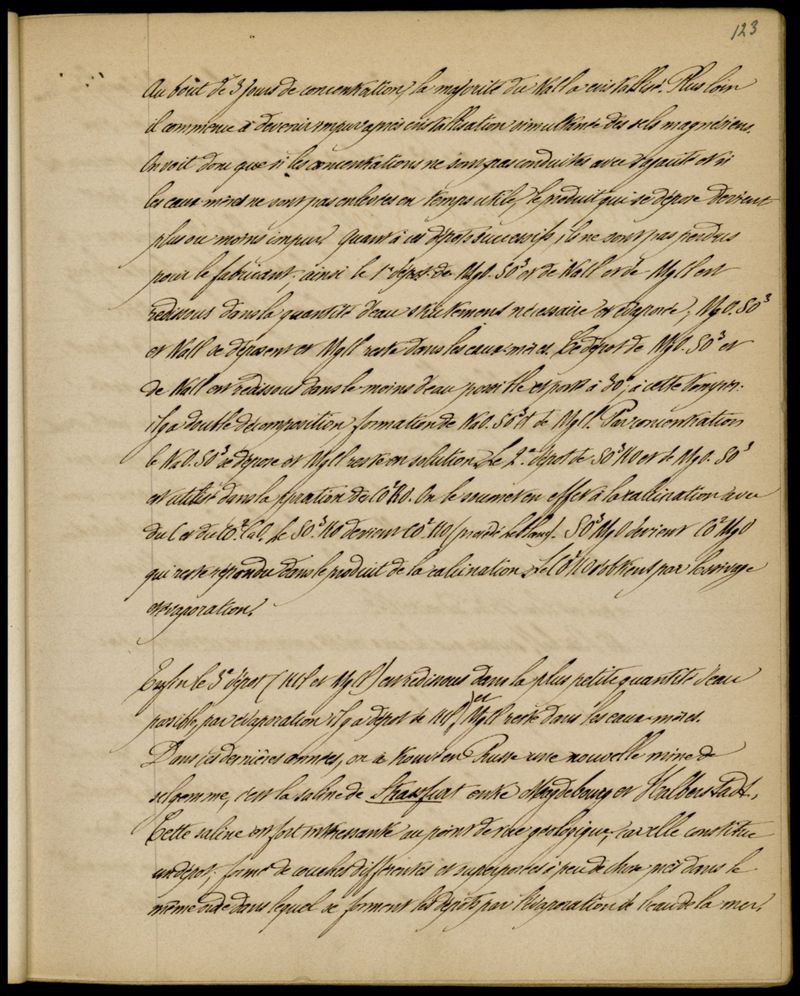 123
Au bout de 3 jours de concentration, la majorité du NaCl a cristallisé. Plus loin
il commence à devenir impur après cristallisation simultanée des sels magnésiens.
On voit donc que si les concentrations ne sont pas conduites avec et si
les eaux mères ne sont pas enlevées en temps utile, le produit qui se dépose devient
plus ou moins impur. Quant à ces dépôts successifs, ils ne sont pas perdus
pour le fabricant, ainsi le 1er dépôt de MgO. SO³ et de NaCl et de MgCl est
redissous dans la quantité d'eau strictement nécessaire et évaporé, MgO. SO³
et NaCl se déposent et MgCl reste dans les eaux mères. Le dépôt de MgO. SO³ et
de NaCl est redissous dans le moins d'eau possible et porté à 30°, à cette tempre:
il y a double décomposition formation de NaO. SO³ et de MgCl. Par concentration
le NaO. SO³ se dépose et MgCl reste en solution. Le 2e dépôt de SO³KO et de MgO. SO³
est utilisé dans la fabrication de CO²KO. On le soumet en effet à la calcination avec
du C et du CO². CaO. Le SO³. KO devient CO². KO (procédé Leblanc). SO³MgO devient CO²MgO
qui reste répandu dans le produit de la calcination. Le CO²KO s'obtient par lessivage
et évaporation.
Enfin le 3e dépôt (KCl et MgCl) est redissous dans la plus petite quantité d'eau
possible, par évaporation il y a dépôt de KCl, et MgCl reste dans les eaux mères.
Dans ces dernières années, on a trouvé en Prusse une nouvelle mine de
sel gemme, c'est la saline de Strassfurt entre Magdebourg et Halberstadt.
Cette saline est fort intéressante au point de vue géologique, car elle constitue
un dépôt formé de couches différentes et superposées à peu de chose près dans le
même ordre dans lequel se forment les dépôts par l'évaporation de l'eau de la mer.